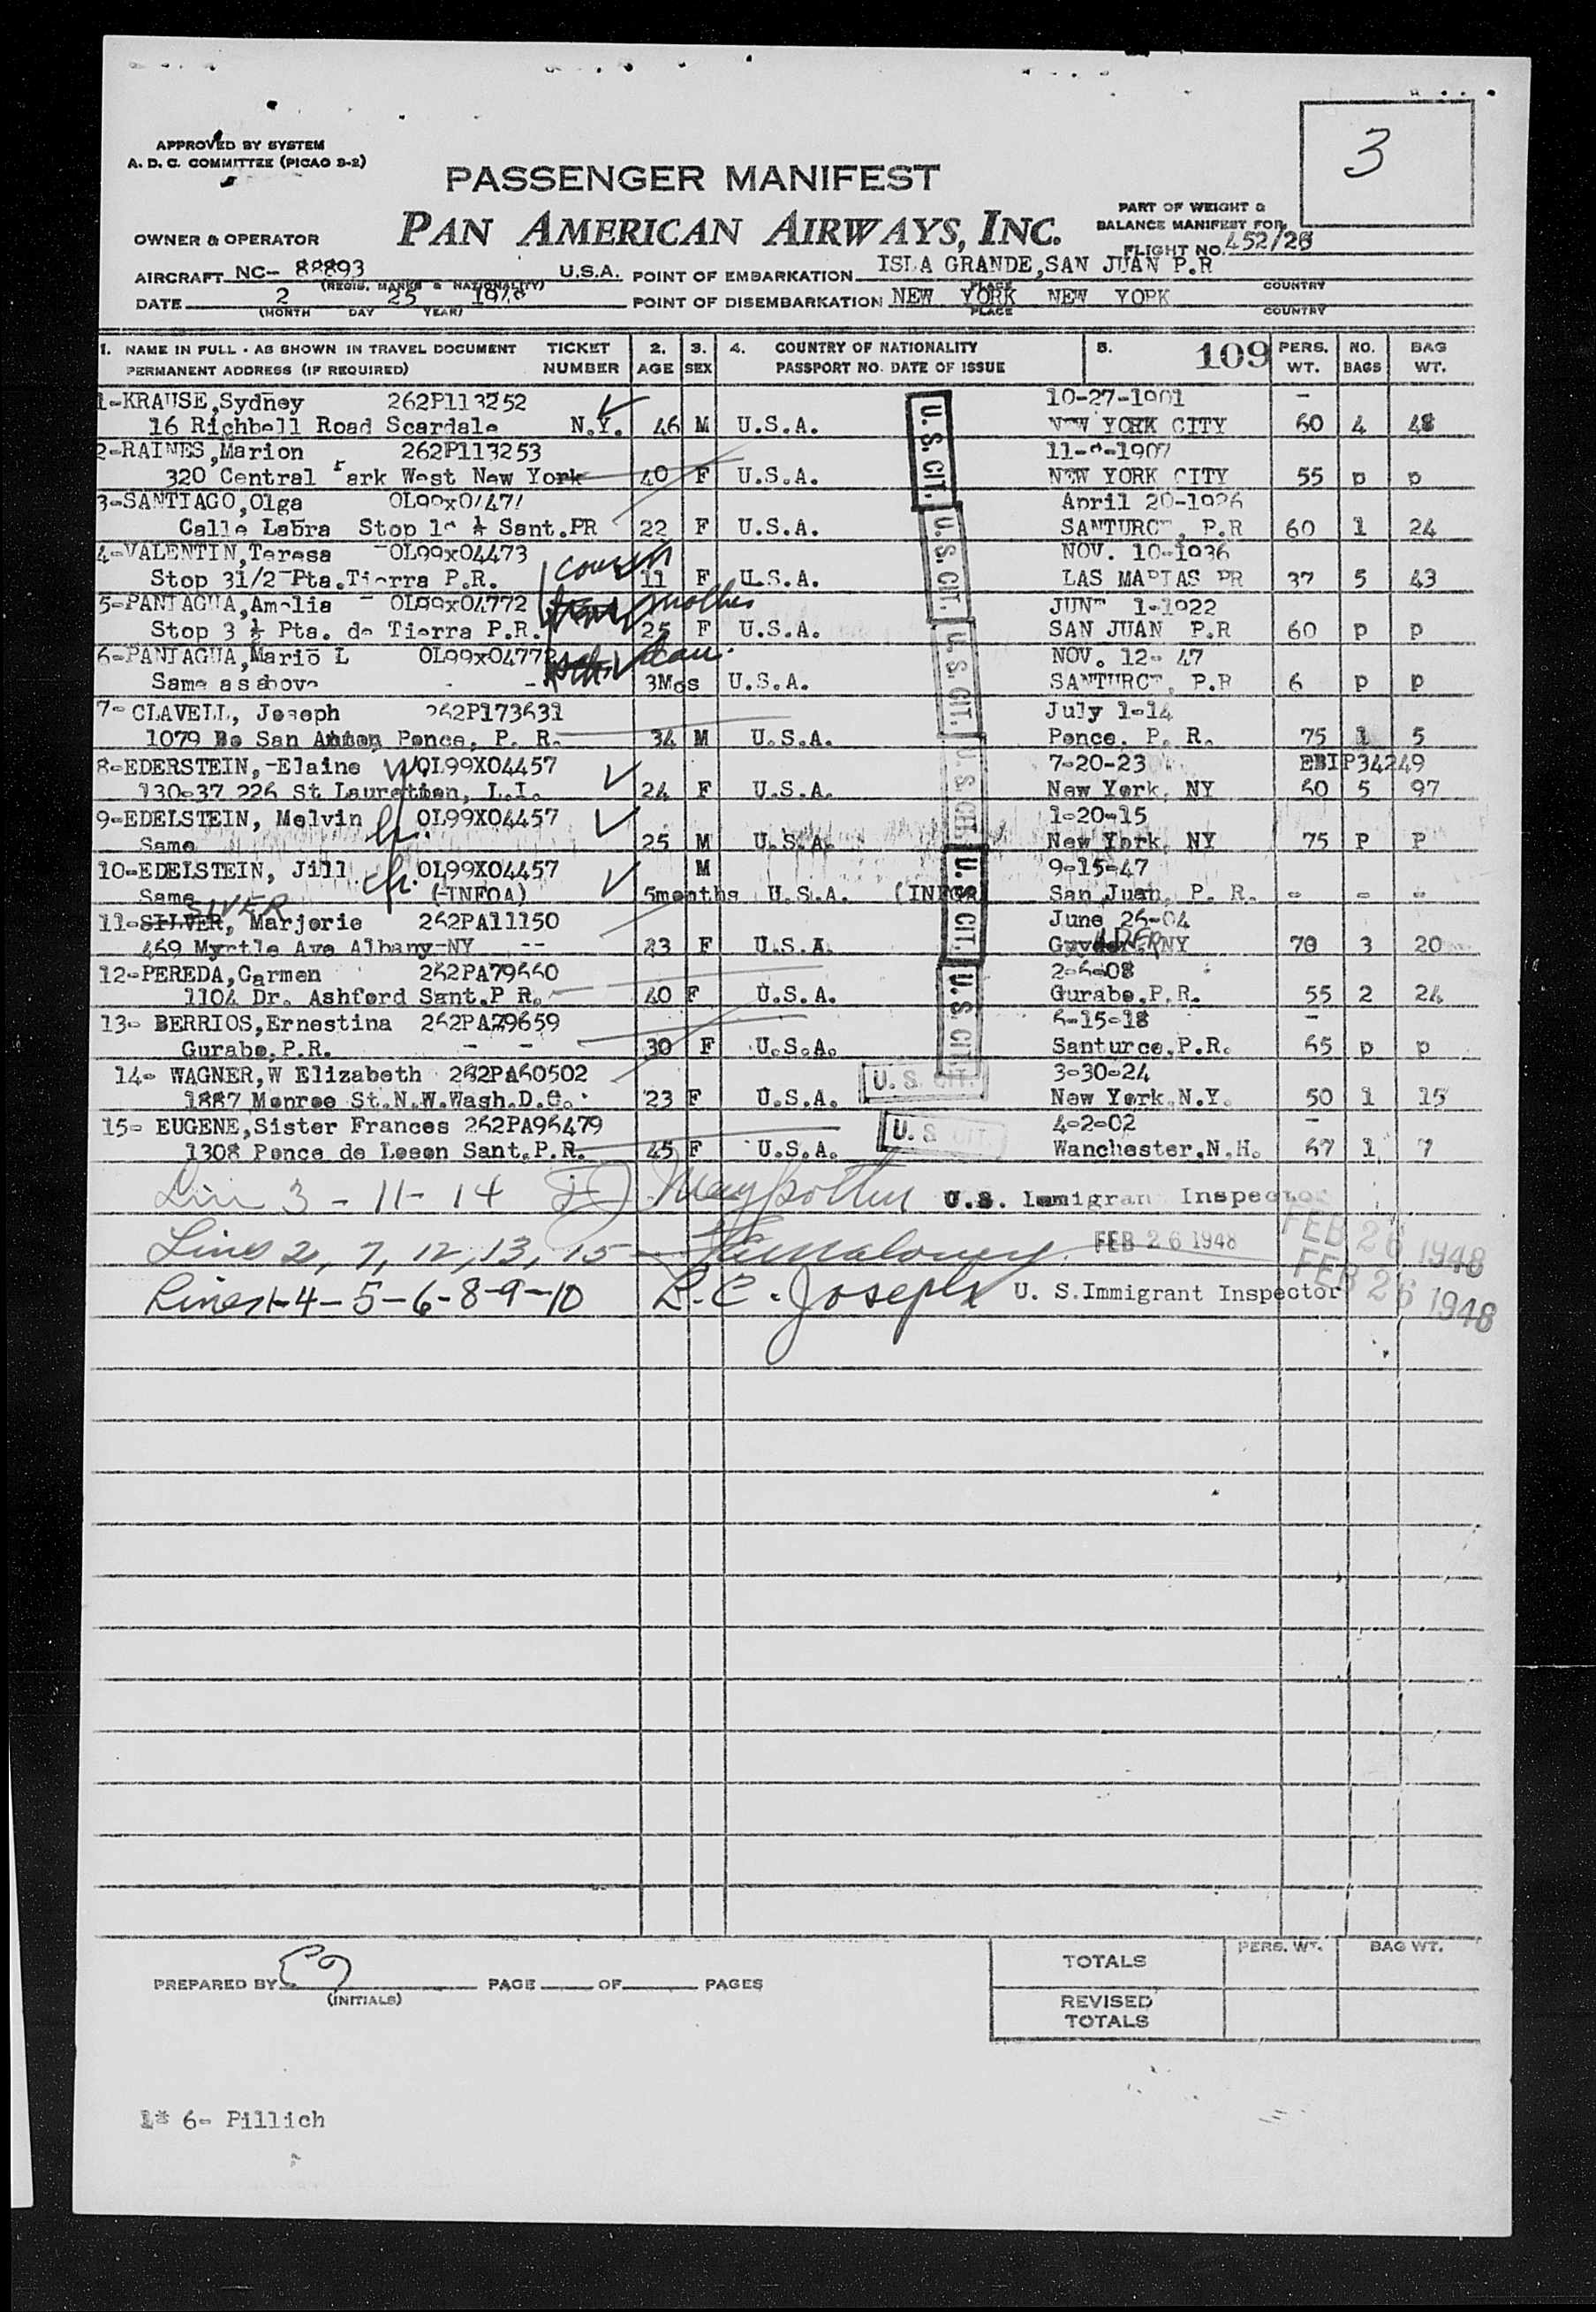 3
APPROVED BY SYSTEM
A. D. C. COMMITTEE (PICAO 9-2)
PASSENGER MANIFEST
PART OF WEIGHT &
BALANCE MANIFEST FOR
OWNER & OPERATOR
PAN AMERICAN AIRWAYS, INC.
FLIGHT NO. 452/26
AIRCRAFT NC- 88893 U.S.A. POINT OF EMBARKATION ISLA GRANDE,SAN JUAN P.R
(REGIS. MARKS & NATIONALITY) PLACE COUNTRY
DATE 2 25 1948 POINT OF DISEMBARKATION NEW YORK NEW YORK
(MONTH DAY YEAR) PLACE COUNTRY
1. NAME IN FULL - AS SHOWN IN TRAVEL DOCUMENT TICKET 2. 3. 4. COUNTRY OF NATIONALITY 5. 109 PERS. NO. BAG
PERMANENT ADDRESS (IF REQUIRED) NUMBER AGE SEX PASSPORT NO. DATE OF ISSUE WT. BAGS WT.
1-KRAUSE,Sydney 262P113252 10-27-1901 -
16 Richbell Road Scardale N.Y. 46 M U.S.A. NEW YORK CITY 60 4 48
2-RAINES,Marion 262P113253 1907
320 Central Park West New York 40 F U.S.A. NEW YORK CITY 55 p p
3-SANTIAGO,Olga OL99x04474 April 20-1926
Calle Labra Stop Sant.PR 22 F U.S.A. SANTURCE, P.R 60 1 24
4-VALENTIN,Teresa OL99x04473 NOV. 10-1936
Stop 31/2 Pta.Tierra P.R. cousin 11 F U.S.A. LAS MARIAS PR 37 5 43
5-PANIAGUA,Amelia OL99x04772 mother JUNE 1-1922
Stop 3 ½ Pta. de Tierra P.R. 25 F U.S.A. SAN JUAN P.R 60 p p
6-PANIAGUA,Mario L OL99x04772 dau. NOV. 12- 47
Same as above - - 3Mos U.S.A. SANTURCE, P.R 6 p p
7- CLAVELL, Joseph 262P173631 July 1-14
1079 Bo San Anton Ponce, P. R. 34 M U.S.A. Ponce. P. R. 75 1 5
8-EDERSTEIN,-Elaine W OL99X04457 7-20-23 EBIP34249
130-37 226 St Laurelton, L.I. 24 F U.S.A. New York, NY 60 5 97
9-EDELSTEIN, Melvin h. OL99X04457 1-20-15
Same 25 M U.S.A. New York, NY 75 P P
10-EDELSTEIN, Jill ch. OL99X04457 M 9-15-47
Same (-INFOA) 5months U.S.A. San Juan, P. R. - - -
SIVER
11-SILVER, Marjorie 262PA11150 June 26-04
469 Myrtle Ave Albany-NY -- 43 F U.S.A. NY 70 3 20
12-PEREDA,Carmen 262PA79660 2-6-08
1104 Dr. Ashford Sant.P R. 40 F U.S.A. Gurabo,P.R. 55 2 24
13- BERRIOS,Ernestina 262PA79659 6-15-18 -
Gurabo,P.R. - - 30 F U.S.A. Santurce,P.R. 65 p p
14- WAGNER,W Elizabeth 262PA60502 3-30-24
1887 Monroe St.N.W.Wash.D.C. 23 F U.S.A. New York,N.Y. 50 1 15
15- EUGENE,Sister Frances 262PA96479 4-2-02 -
1308 Ponce de Leeon Sant.P.R. 45 F U.S.A. Wanchester,N.H. 67 1 7
U.S. CIT.
U.S. CIT.
U.S. CIT.
U.S. CIT.
U.S. CIT.
U.S. CIT.
U.S. CIT.
U.S. CIT.
Lin 3 - 11 - 14 U.S. Immigrant Inspector
FEB 26 1948
Lines 2, 7, 12, 13, 15 FEB 26 1948
FEB 26 1948
Lines 1-4-5-6-8-9-10 R.C. Joseph U. S.Immigrant Inspector
PERS. WT. BAG WT.
TOTALS
PREPARED BY PAGE OF PAGES
(INITIALS)
REVISED
TOTALS
1* 6- Pillich